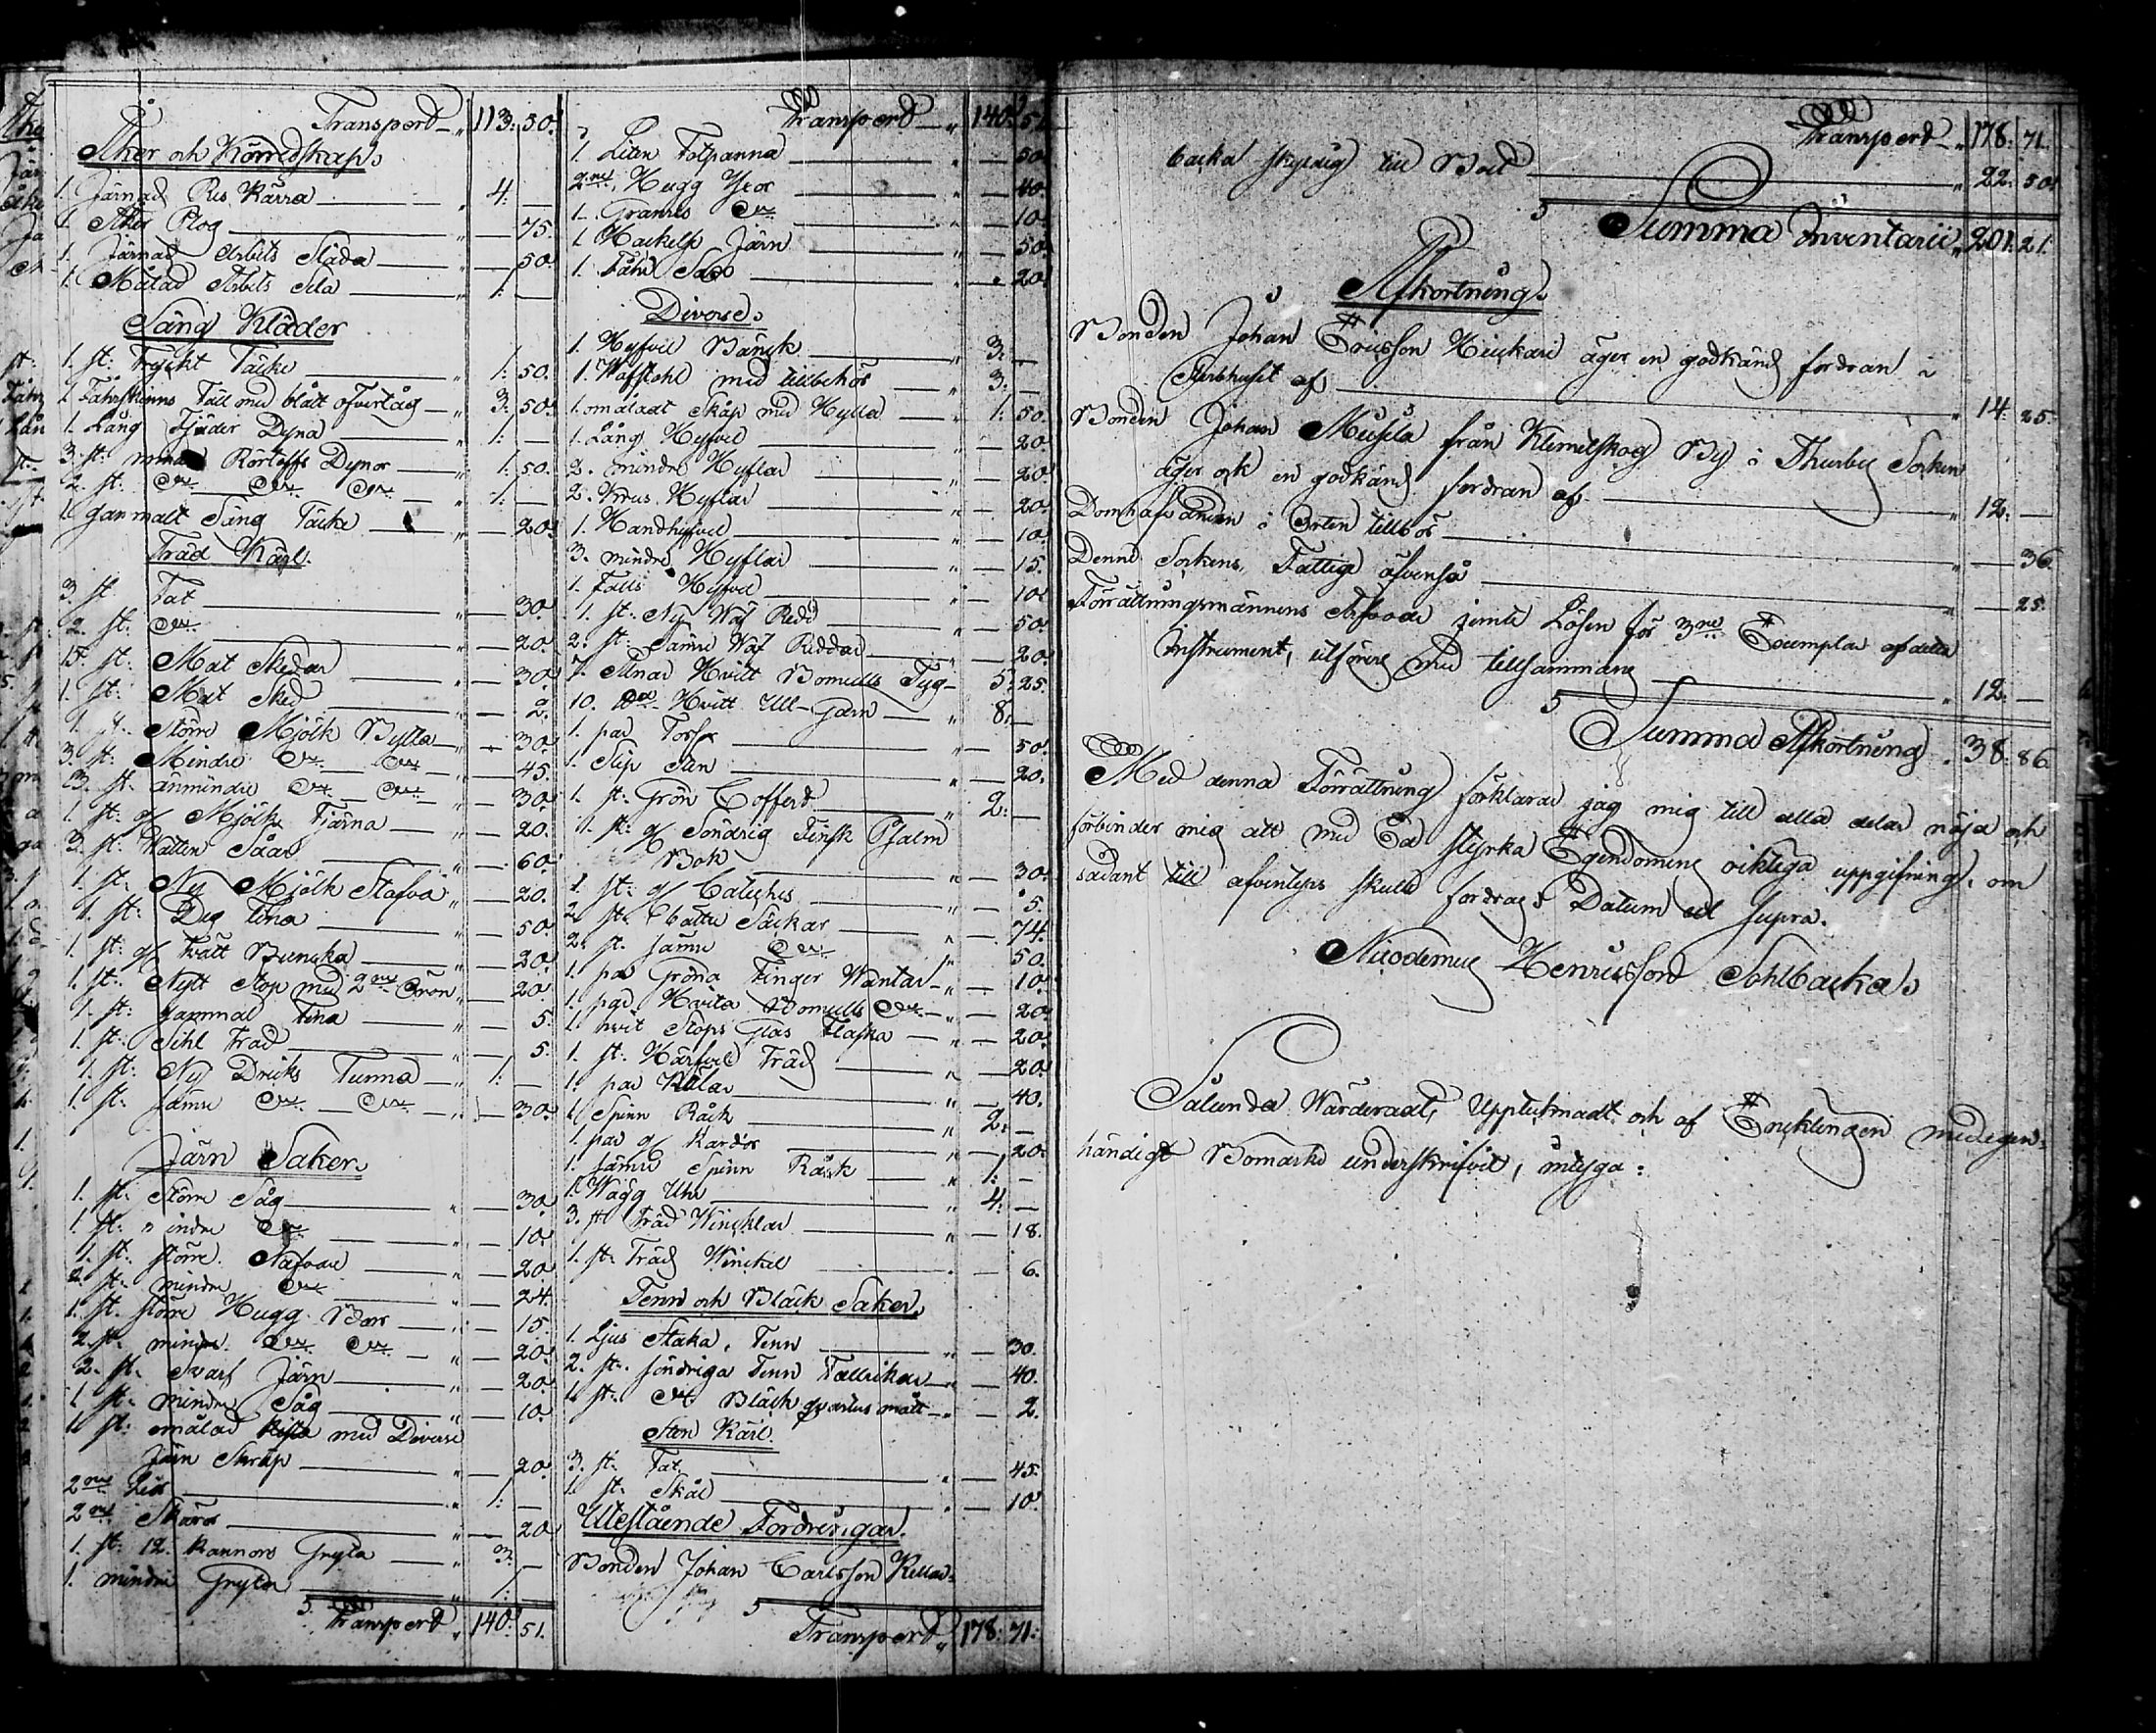 Transport 113: 50.
Åker och Körredskap.
1. Järnad Ris Kärra 4: —
1. Åker Plog — 75.
1. Järnad Arbets Släda — 50.
1. Målad Arbets Sela 1: —
Säng Kläder
1. st: Tryckt Täcke 1: 50.
1. Fahrskinns Fäll med blått öfvertåg 3: 50.
1. Lång Fjäder Dyna 1: —
3. st: Dynor 1: 50.
2. st: Do Do Do 1: —
1 gammalt Säng Täcke — 20.
Träd Kägl.
3. st Fat — 30.
2. st: Do — 20.
15. st: Mat Skedar — 30.
1. st: Mat Sked — 2.
1. st. Större Mjölk Bytta — 30.
3. st: Mindre Do Do — 45.
3. st. ännmindre Do Do — 30
1. st: gl Mjölk Tjärna — 20.
3. st: Watten Såar — 60.
1. st: Ny Mjölk Stäfva — 20.
1. st: Deg Tina — 50.
1. st: gl Tvätt Buncka — 20.
1. st: Nytt Stop med 2ne Öron — 20.
1. st: gammal Tina — 5.
1. st: Sihl Träd — 5.
1. st: Ny Dricks Tunna 1: —
1. st: sämre Do Do — 30.
Järn Saker.
1. st: Större Såg — 30.
1. st: mindre Do — 10.
1. st: större Nafvare — 20
2. st: mindre Do — 24.
1. st. större Hugg Barr — 15.
2. st. mindre Do Do — 20.
2. st. Svarf Järn — 20.
1 st. mindre Såg — 10.
1. st: omålad Kista med Diverse
Järn Skrap — 20.
2ne Liar 1: —
2ne Skäror — 20
1. st: 12. Kannors Gryta 3. —
1. mindre Gryta 1: —
Transport 140: 51.
Transport 140: 51.
1. Liten Fotpanna — 50.
2ne Hugg Yxor — 40.
1. Granris Do — 10.
1. Hackels Järn — 50.
1. Fåhr Sax — 20.
Diverse.
1. Hyfvel Bänck 3: —
1. Wäfstohl med tillbehör 3: —
1. omåladt Skåp med Hylla 1: 50.
1. Lång Hyfvel — 20.
2. mindre Hyflar — 20.
2. Krus Hyflar — 20.
1. Handhyfvel — 10.
3. mindre Hyflar — 15.
1. Falls Hyfvel — 10.
1. st: Ny Wäf Redd — 50.
2. st: Sämre Wäf Reddar — 20.
7. Alnar Hvitt Bomulls Tyg 5: 25.
10. Hvitt Ull-Garn 8: —
1. par — 50.
1. Slip Sten — 20.
1. st: Grön Coffert 2: —
1. st: gl Söndrig Finsk Psalm
Bok — 30.
1. st: gl Cateches — 5.
2 st: bättre Säckar — 74.
2. st: sämre Do 50.
1. par Gröna Finger Wantar — 10.
1. par Hvita Bomulls Do — 20.
1. hvit Stops Glas Flaska — 20.
1. st: Härfvel Träd — 20.
1. par — 40.
1. Spinn Råck 2: —
1. par gl Kardor — 20.
1. sämre Spinn Råck 1: —
1. Wägg Uhr 4: —
3. st Träd Wincklar — 18.
1. st: Träd Winckel — 6.
Tenn och Bläck Saker.
1. Ljus Staka, Tenn — 30.
2. st. söndriga Tenn Tallrickar — 40.
1. st: Bläck qvarters mått — 2.
Sten Kärl.
3. st: Fat — 45.
1. st: Skål — 10.
Utestående Fordringar.
Bonden Johan Carlsson Kellar-
Transport 178: 71.
Transport 178: 71.
backa skyldig till Boet 22: 50.
Summa Inventarii 201. 21.
Afkortning.
Bonden Johan Ericsson Heickari äger en godkänd fordran i
Sterbhuset af 14: 25.
Bonden Johan Meusela från Klemetskog By i Thusby Socken
äger ock en godkänd fordran af 12: —
Domhafvanden i Orten tillkör — 36
Denne Sockens Fattige äfvenså — 25.
Förrättningsmännens Arfvode jemte Lösen för 3ne Exemplar af detta
Instrument, utföres med tillsammans 12: —
Summa Afkortning 38: 86
Med denna Förrättning förklarar jag mig till alla delar nöja och
förbinder mig att med Ed styrka Egendomens riktiga uppgifning, om
sådant till äfventyrs skulle fordras, Datum ut Supra.
Nicodemus Henricsson Sohlbacka.
Sålunda Wärderadt, Upptecknadt och af Encklingen medegen-
händigt Bomärke underskrifvit, intyga: